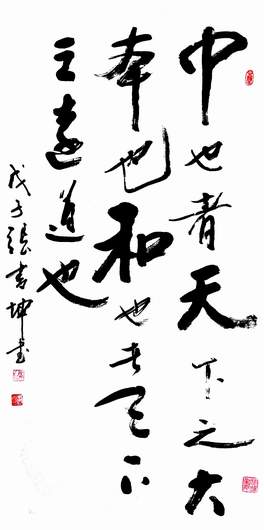 中也者天下之大
本也和也者天下
之達道也
戊子張坤書